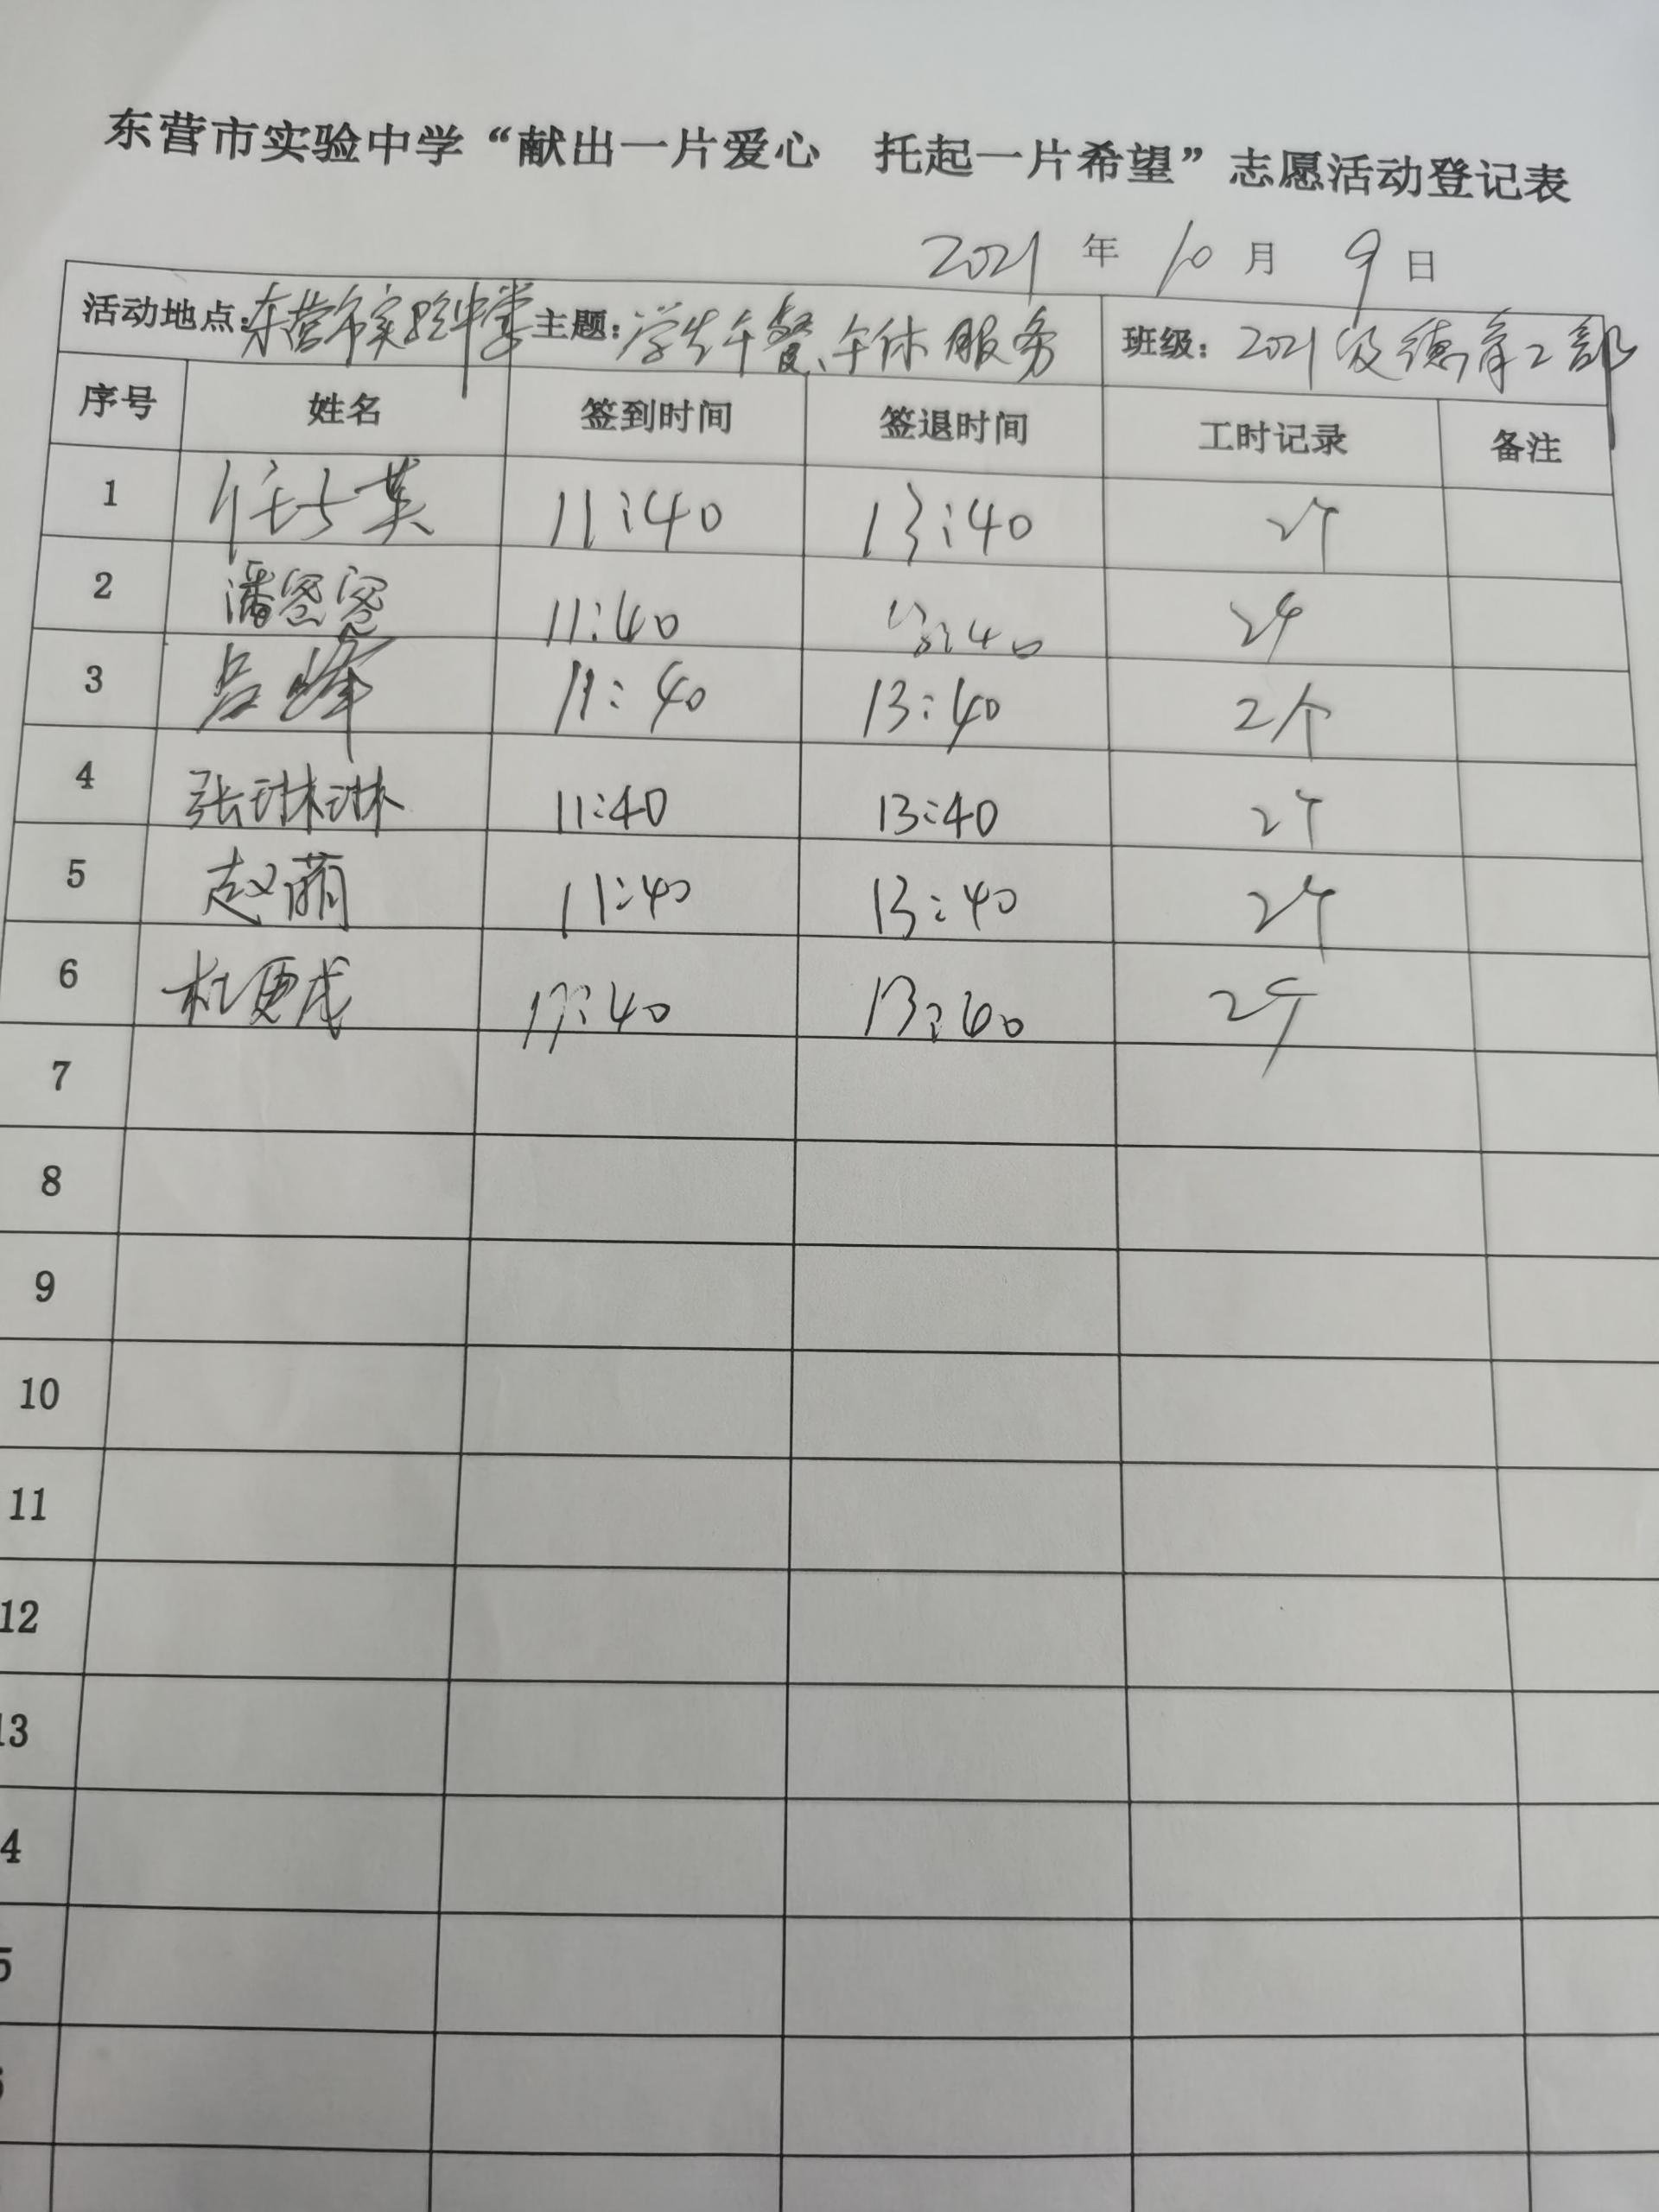 东营市实验中学“献出一片爱心 托起一片希望”志愿活动登记表
2021 年 10 月 9 日
活动地点：东营市实验中学 主题：学生午餐、午休服务 班级：2021级德育二部
序号 姓名 签到时间 签退时间 工时记录 备注
1 任士英 11:40 13:40 2个
2 潘密密 11:40 13:40 2个
3 吕峰 11:40 13:40 2个
4 张琳琳 11:40 13:40 2个
5 赵萌 11:40 13:40 2个
6 11:40 13:40 2个
7
8
9
10
11
12
13
4
5